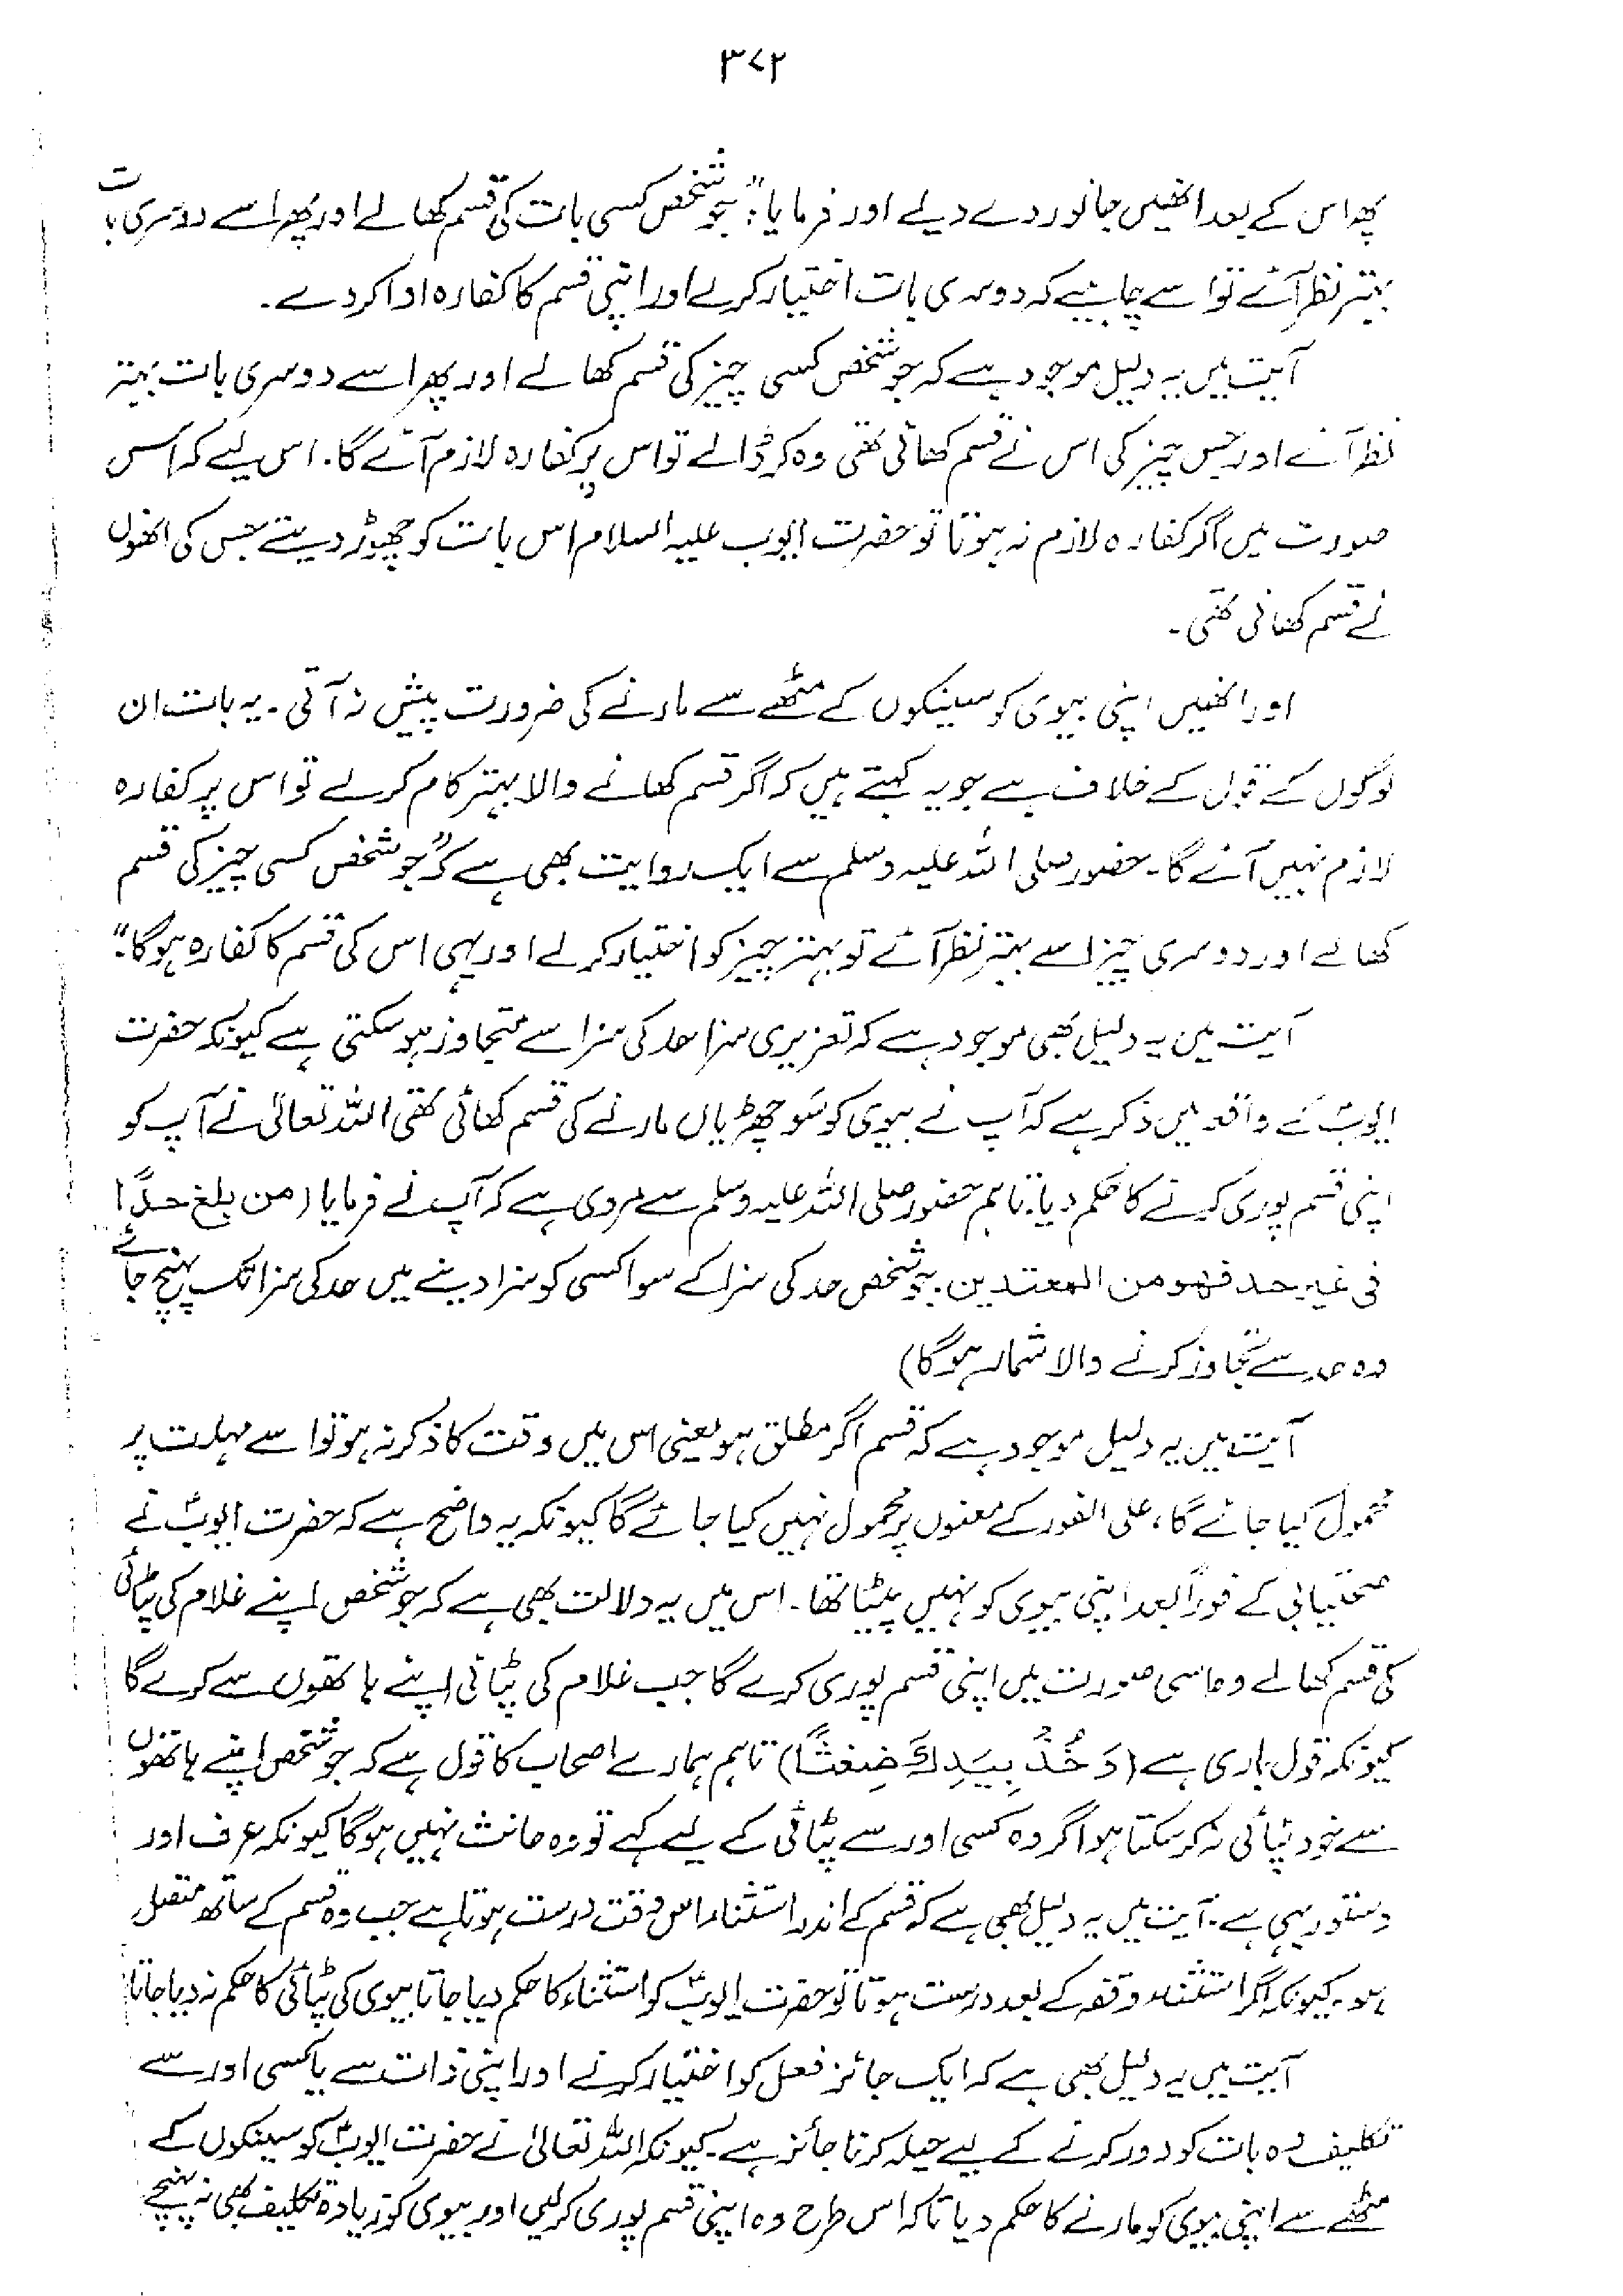 ۳۷۲
پھر اس کے بعد انھیں جانور دے دیے اور فرمایا: "جو شخص کسی بات کی قسم کھا لے اور پھر اسے دوسری بات
بہتر نظر آئے تو اسے چاہیے کہ دوسری بات اختیار کرلے اور اپنی قسم کا کفارہ ادا کردے۔
آیت میں یہ دلیل موجود ہے کہ جو شخص کسی چیز کی قسم کھا لے اور پھر اسے دوسری بات بہتر
نظر آئے اور جس چیز کی اس نے قسم کھائی تھی وہ کر ڈالے تو اس پر کفارہ لازم آئے گا۔ اس لیے کہ اس
صورت میں اگر کفارہ لازم نہ ہوتا تو حضرت ایوب علیہ السلام اس بات کو چھوڑ دیتے جس کی انھوں
نے قسم کھائی تھی۔
اور انھیں اپنی بیوی کو سینکوں کے مٹھے سے مارنے کی ضرورت پیش نہ آتی۔ یہ بات ان
لوگوں کے قول کے خلاف ہے جو یہ کہتے ہیں کہ اگر قسم کھانے والا بہتر کام کرلے تو اس پر کفارہ
لازم نہیں آئے گا۔ حضور صلی اللہ علیہ وسلم سے ایک روایت بھی ہے کہ "جو شخص کسی چیز کی قسم
کھا لے اور دوسری چیز اسے بہتر نظر آئے تو بہتر چیز کو اختیار کرلے اور یہی اس کی قسم کا کفارہ ہوگا"۔
آیت میں یہ دلیل بھی موجود ہے کہ تعزیری سزا حد کی سزا سے متجاوز ہو سکتی ہے کیونکہ حضرت
ایوبؑ کے واقعہ میں ذکر ہے کہ آپ نے بیوی کو سَو چھڑیاں مارنے کی قسم کھائی تھی اللہ تعالیٰ نے آپ کو
اپنی قسم پوری کرنے کا حکم دیا۔ تاہم حضور صلی اللہ علیہ وسلم سے مروی ہے کہ آپ نے فرمایا (من بلغ حدًّا
فی غیر حد فھو من المعتدین۔ جو شخص حد کی سزا کے سوا کسی کو سزا دینے میں حد کی سزا تک پہنچ جائے
وہ حد سے تجاوز کرنے والا شمار ہوگا)
آیت میں یہ دلیل موجود ہے کہ قسم اگر مطلق ہو یعنی اس میں وقت کا ذکر نہ ہو تو اسے مہلت پر
محمول کیا جائے گا، علی الفور کے معنوں پر محمول نہیں کیا جائے گا کیونکہ یہ واضح ہے کہ حضرت ایوبؑ نے
صحتیابی کے فوراً بعد اپنی بیوی کو نہیں پیٹا تھا۔ اس میں یہ دلالت بھی ہے کہ جو شخص اپنے غلام کی پٹائی
کی قسم کھا لے وہ اسی صورت میں اپنی قسم پوری کرے گا جب غلام کی پٹائی اپنے ہاتھوں سے کرے گا
کیونکہ قول باری ہے (وَ خُذْ بِیَدِكَ ضِغْثًا) تاہم ہمارے اصحاب کا قول ہے کہ جو شخص اپنے ہاتھوں
سے خود پٹائی نہ کرسکتا ہو اگر وہ کسی اور سے پٹائی کے لیے کہے تو وہ حانث نہیں ہوگا کیونکہ عرف اور
دستور یہی ہے۔ آیت میں یہ دلیل بھی ہے کہ قسم کے اندر استثناء اس وقت درست ہوتا ہے جب وہ قسم کے ساتھ متصل
ہو۔ کیونکہ اگر استثناء وقفہ کے بعد درست ہوتا تو حضرت ایوبؑ کو استثناء کا حکم دیا جاتا بیوی کی پٹائی کا حکم نہ دیا جاتا
آیت میں یہ دلیل بھی ہے کہ ایک جائز فعل کو اختیار کرنے اور اپنی ذات سے یا کسی اور سے
تکلیف دہ بات کو دور کرنے کے لیے حیلہ کرنا جائز ہے۔ کیونکہ اللہ تعالیٰ نے حضرت ایوبؑ کو سینکوں کے
مٹھے سے اپنی بیوی کو مارنے کا حکم دیا تاکہ اس طرح وہ اپنی قسم پوری کرلیں اور بیوی کو زیادہ تکلیف بھی نہ پہنچے